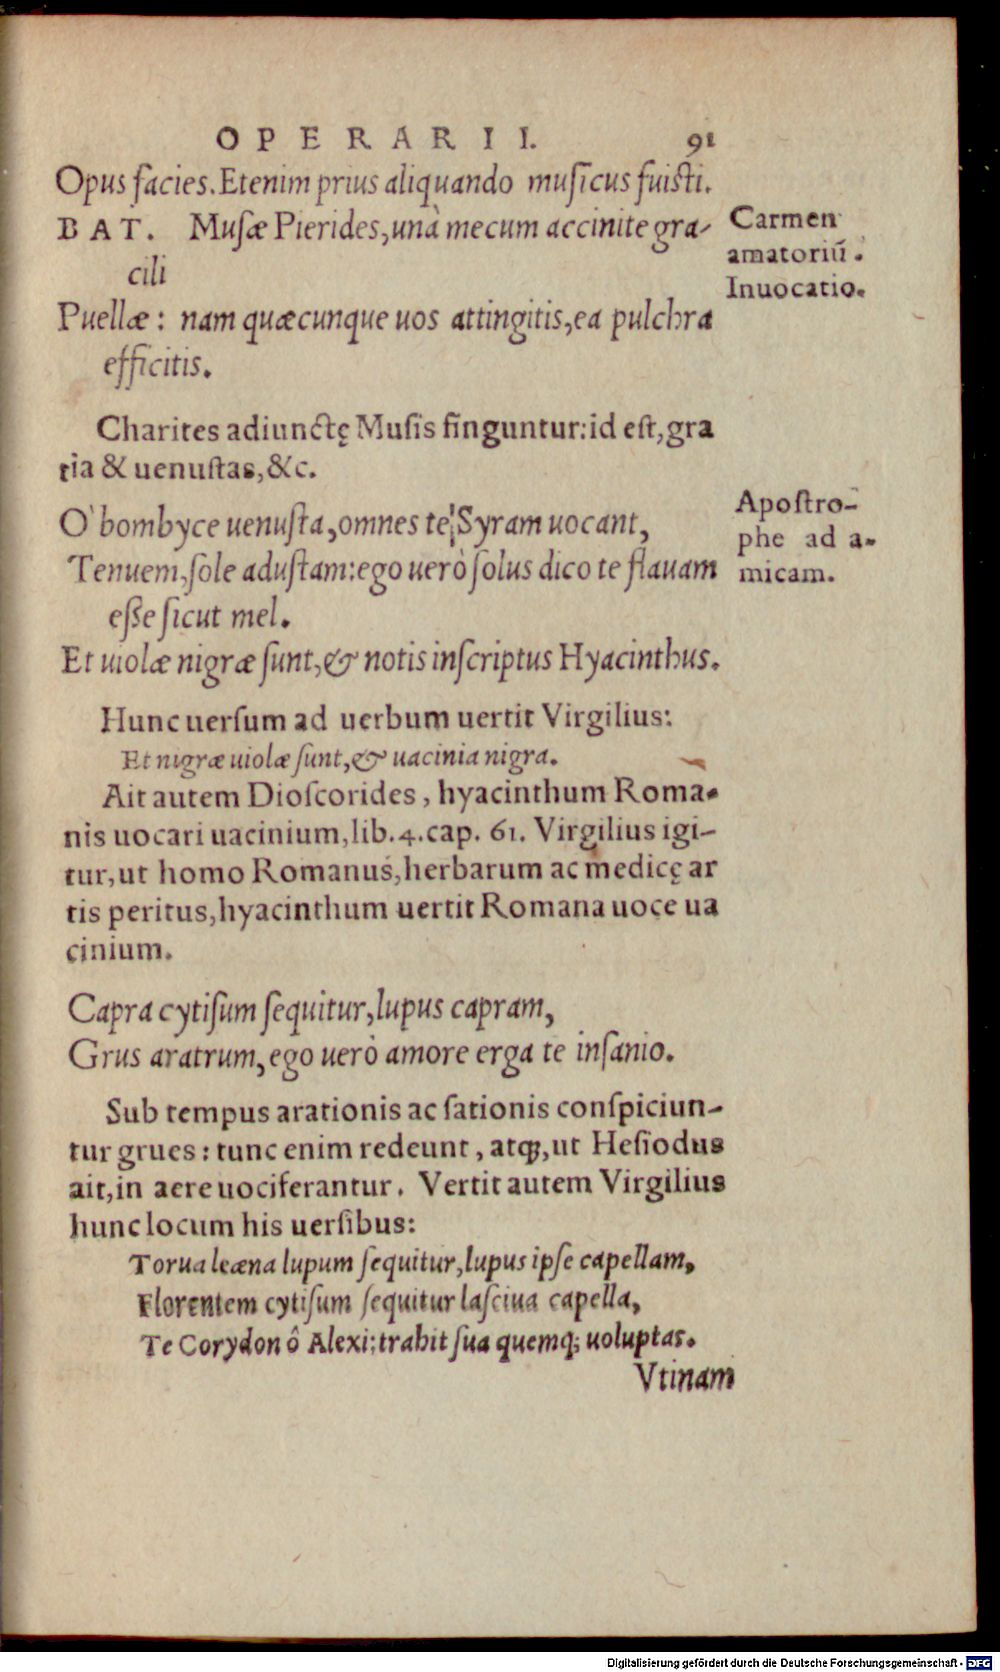 OPERARII. 91
Opus facies. Etenim prius aliquando musicus fuisti.
BAT. Musæ Pierides, unà mecum accinite gra-
cili
Carmen
amatoriũ.
Inuocatio.
Puellæ: nam quæcunque uos attingitis, ea pulchra
efficitis.
Charites adiunctę Musis finguntur: id est, gra
tia & uenustas, &c.
O' bombyce uenusta, omnes te Syram uocant,
Tenuem, sole adustam: ego uerò solus dico te flauam
esse sicut mel.
Apostro-
phe ad a-
micam.
Et uiolæ nigræ sunt, & notis inscriptus Hyacinthus.
Hunc uersum ad uerbum uertit Virgilius:
Et nigræ uiolæ sunt, & uacinia nigra.
Ait autem Dioscorides, hyacinthum Roma-
nis uocari uacinium, lib. 4. cap. 61. Virgilius igi-
tur, ut homo Romanus, herbarum ac medicę ar
tis peritus, hyacinthum uertit Romana uoce ua
cinium.
Capra cytisum sequitur, lupus capram,
Grus aratrum, ego uerò amore erga te insanio.
Sub tempus arationis ac sationis conspiciun-
tur grues: tunc enim redeunt, atq;, ut Hesiodus
ait, in aere uociferantur. Vertit autem Virgilius
hunc locum his uersibus:
Torua leæna lupum sequitur, lupus ipse capellam,
Florentem cytisum sequitur lasciua capella,
Te Corydon ô Alexi: trahit sua quemq; uoluptas.
Vtinam
Digitalisierung gefördert durch die Deutsche Forschungsgemeinschaft - DFG